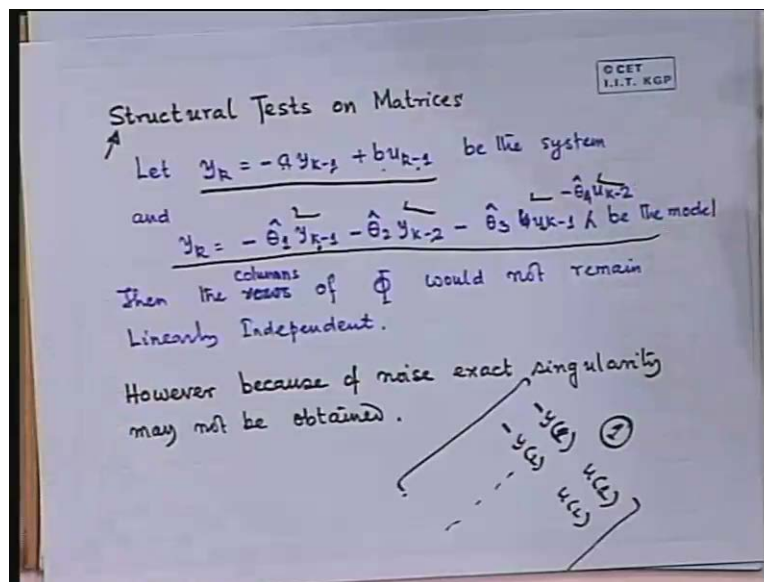 © CET
I.I.T. KGP
Structural Tests on Matrices
Let y_k = -a y_{k-1} + b u_{k-1} be the system
and - θ̂_4 u_{k-2}
y_k = - θ̂_1 y_{k-1} - θ̂_2 y_{k-2} - θ̂_3 u_{k-1} be the model
columns
Then the rows of Φ would not remain
Linearly Independent.
However because of noise exact singularity
may not be obtained.